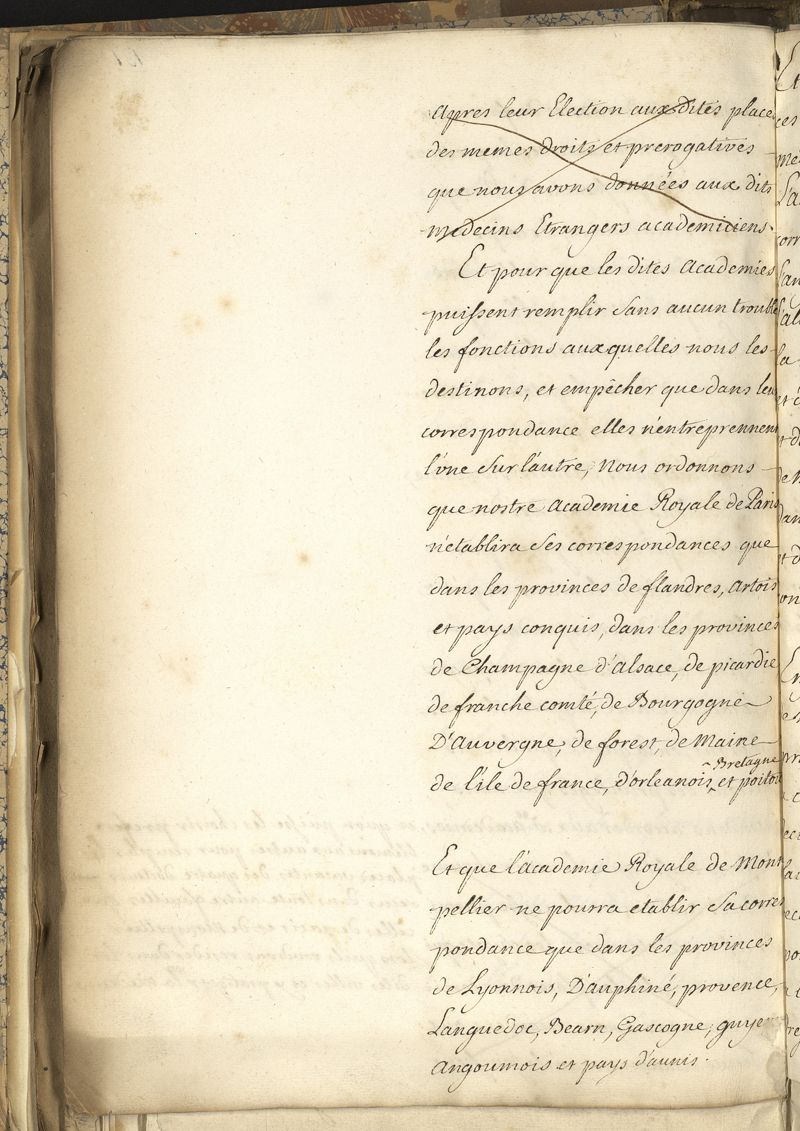 apres leur Election aux dites places
des memes droits et prerogatives
que nous avons données aux dits
medecins Etrangers academiciens.
Et pour que les dites Academies
puissent remplir sans aucun trouble
les fonctions auxquelles nous les
destinons, et empêcher que dans leur
correspondance elles n'entreprennent
l'une sur l'autre, Nous ordonnons
que nostre academie Royale de Paris
n'etablira ses correspondances que
dans les provinces de flandres, artois
et pays conquis, dans les provinces
de Champagne d'alsace, de picardie
de franche comté, de Bourgogne
D'auvergne, de forest, de Maine
de l'ile de france, d'orleanois, Bretagne et poitou
Et que l'academie Royale de Mont
pellier ne pourra etablir sa corres
pondance que dans les provinces
de Lyonnois, D'auphiné, provence,
Languedoc, Bearn, Gascogne, guyenne
angoumois et pays d'aunis.